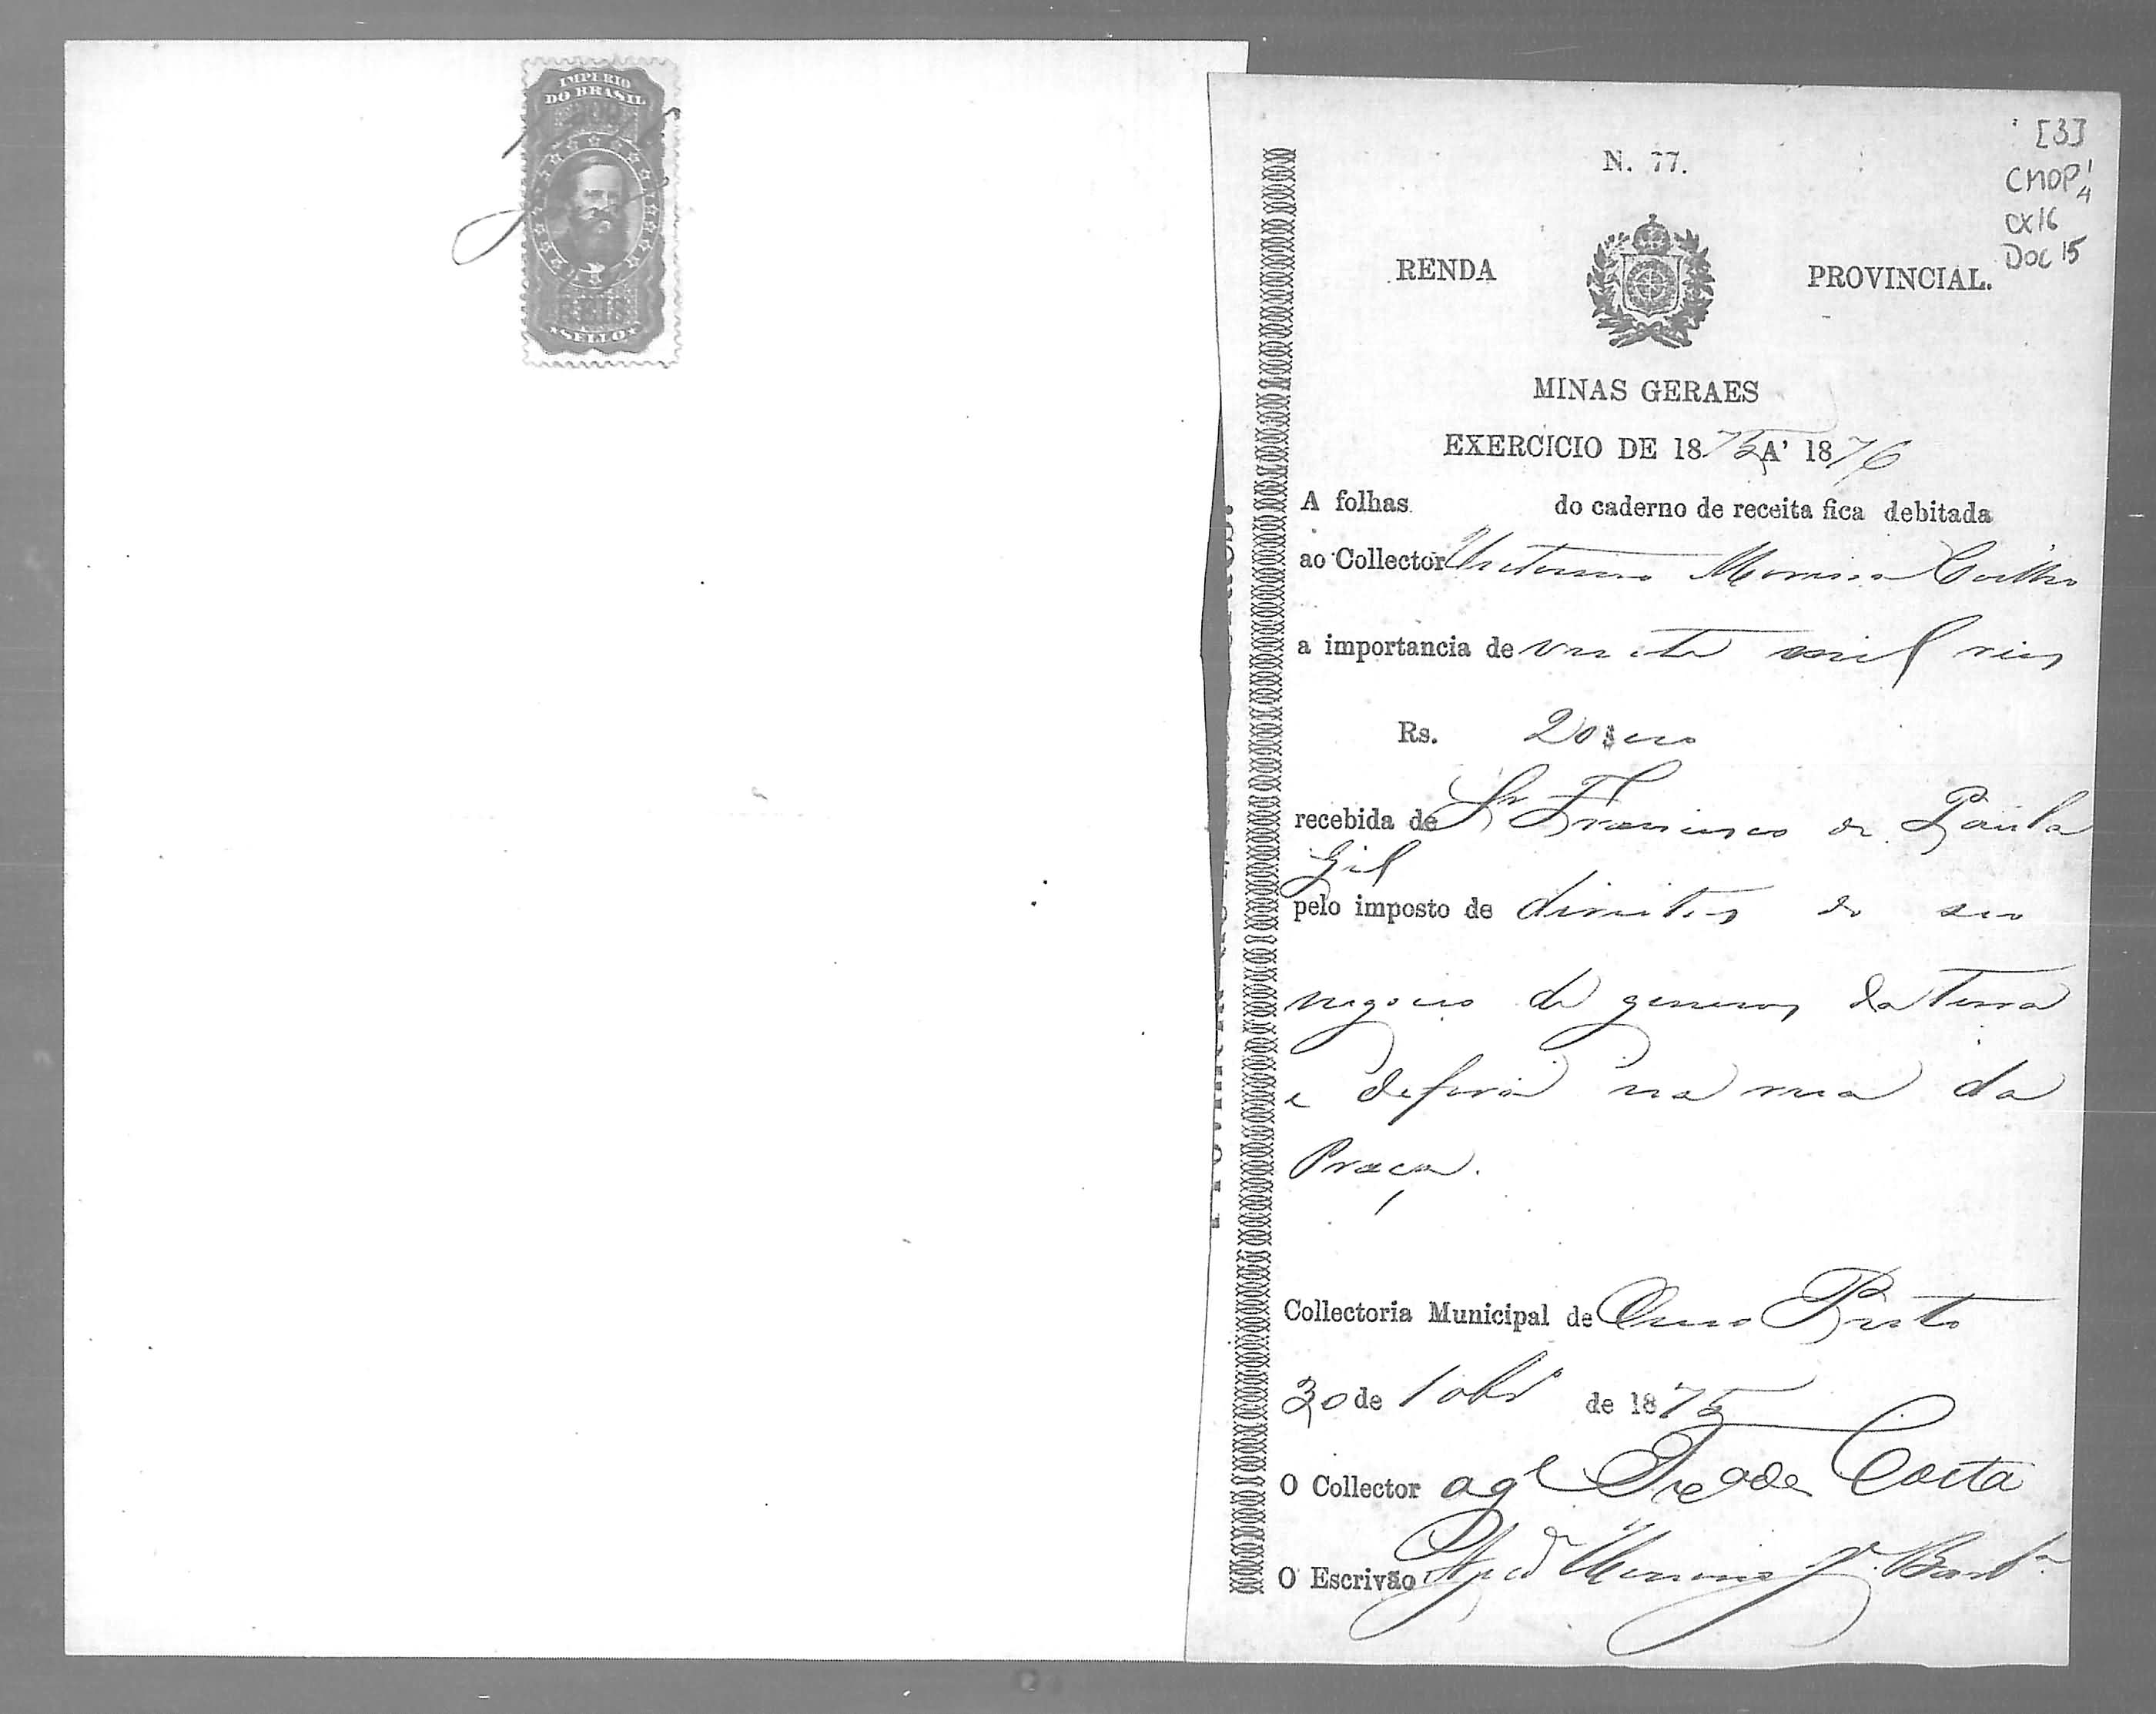 IMPERIO
DO BRASIL
REIS
SELLO
[3]
CMOP
cx 16
Doc 15
N. 77.
RENDA PROVINCIAL.
MINAS GERAES
EXERCICIO DE 1875 A' 1876
A folhas do caderno de receita fica debitada
ao Collector Coelho
a importancia de vinte mil reis
Rs. 20$000
recebida de Sr Francisco de Paula
Gil
pelo imposto de direitos do seo
negocio de generos da Terra
e defora na rua da
Praça.
Collectoria Municipal de Ouro Preto
30 de de 1875
O Collector Costa
O Escrivão